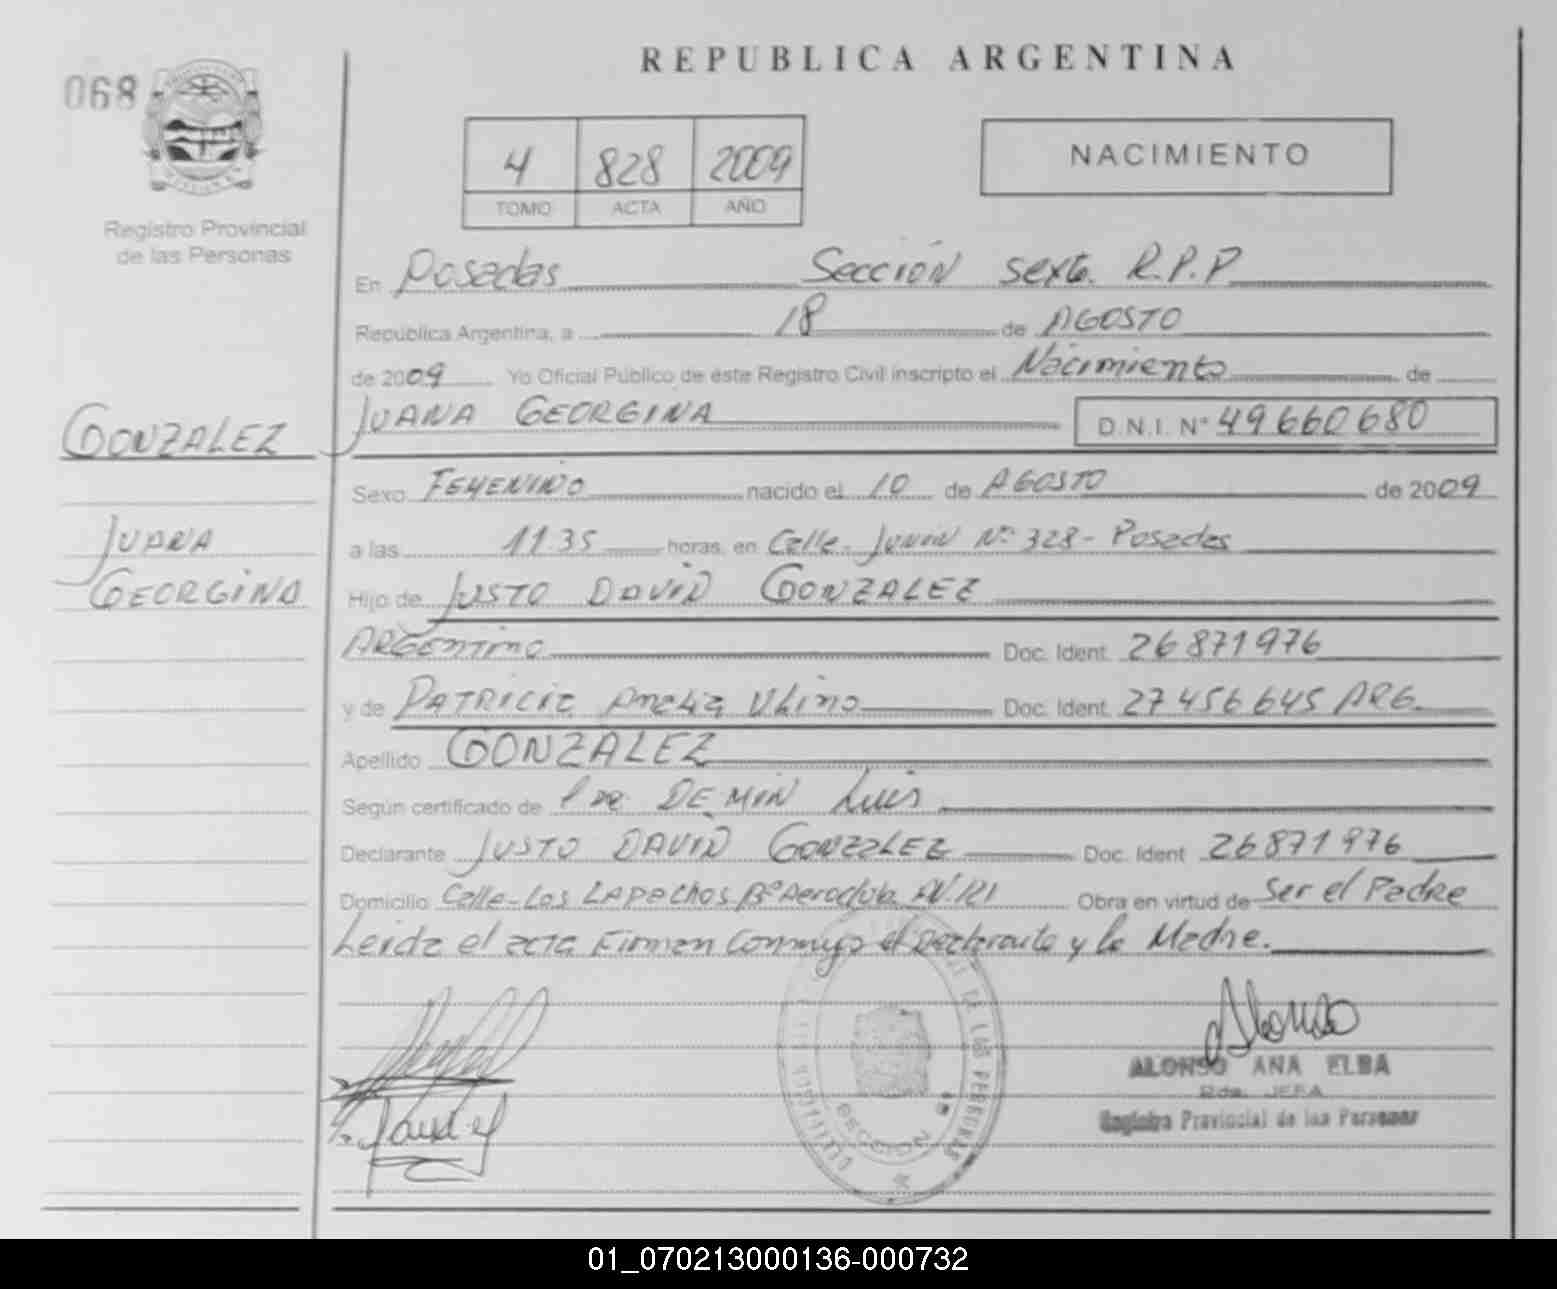 REPUBLICA ARGENTINA
068
4 828 2009
TOMO ACTA AÑO
NACIMIENTO
Registro Provincial
de las Personas
En Posadas Sección sexta R.P.P
República Argentina, a 18 de AGOSTO
de 2009 Yo Oficial Público de este Registro Civil inscripto el Nacimiento de
GONZALEZ JUANA GEORGINA D.N.I. Nº 49660680
Sexo FEMENINO nacido el 10 de AGOSTO de 2009
JUANA
a las 11 35 horas, en Calle - Junín Nº 328 - Posadas
GEORGINA
Hijo de JUSTO DAVID GONZALEZ
ARGENTINO Doc. Ident. 26871976
y de PATRICIA Amelia Doc. Ident. 27456645 ARG.
Apellido GONZALEZ
Según certificado de DEMIN Luis
Declarante JUSTO DAVID GONZALEZ Doc. Ident 26871976
Domicilio Calle - Los LAPACHOS Bº Aeroclub AV. 121 Obra en virtud de Ser el Padre
Leida el acta Firman Conmigo el Declarante y la Madre.
Alonso
ALONSO ANA ELBA
JEFA
Registro Provincial de las Personas
DE LAS PERSONAS
SECCION
01_070213000136-000732